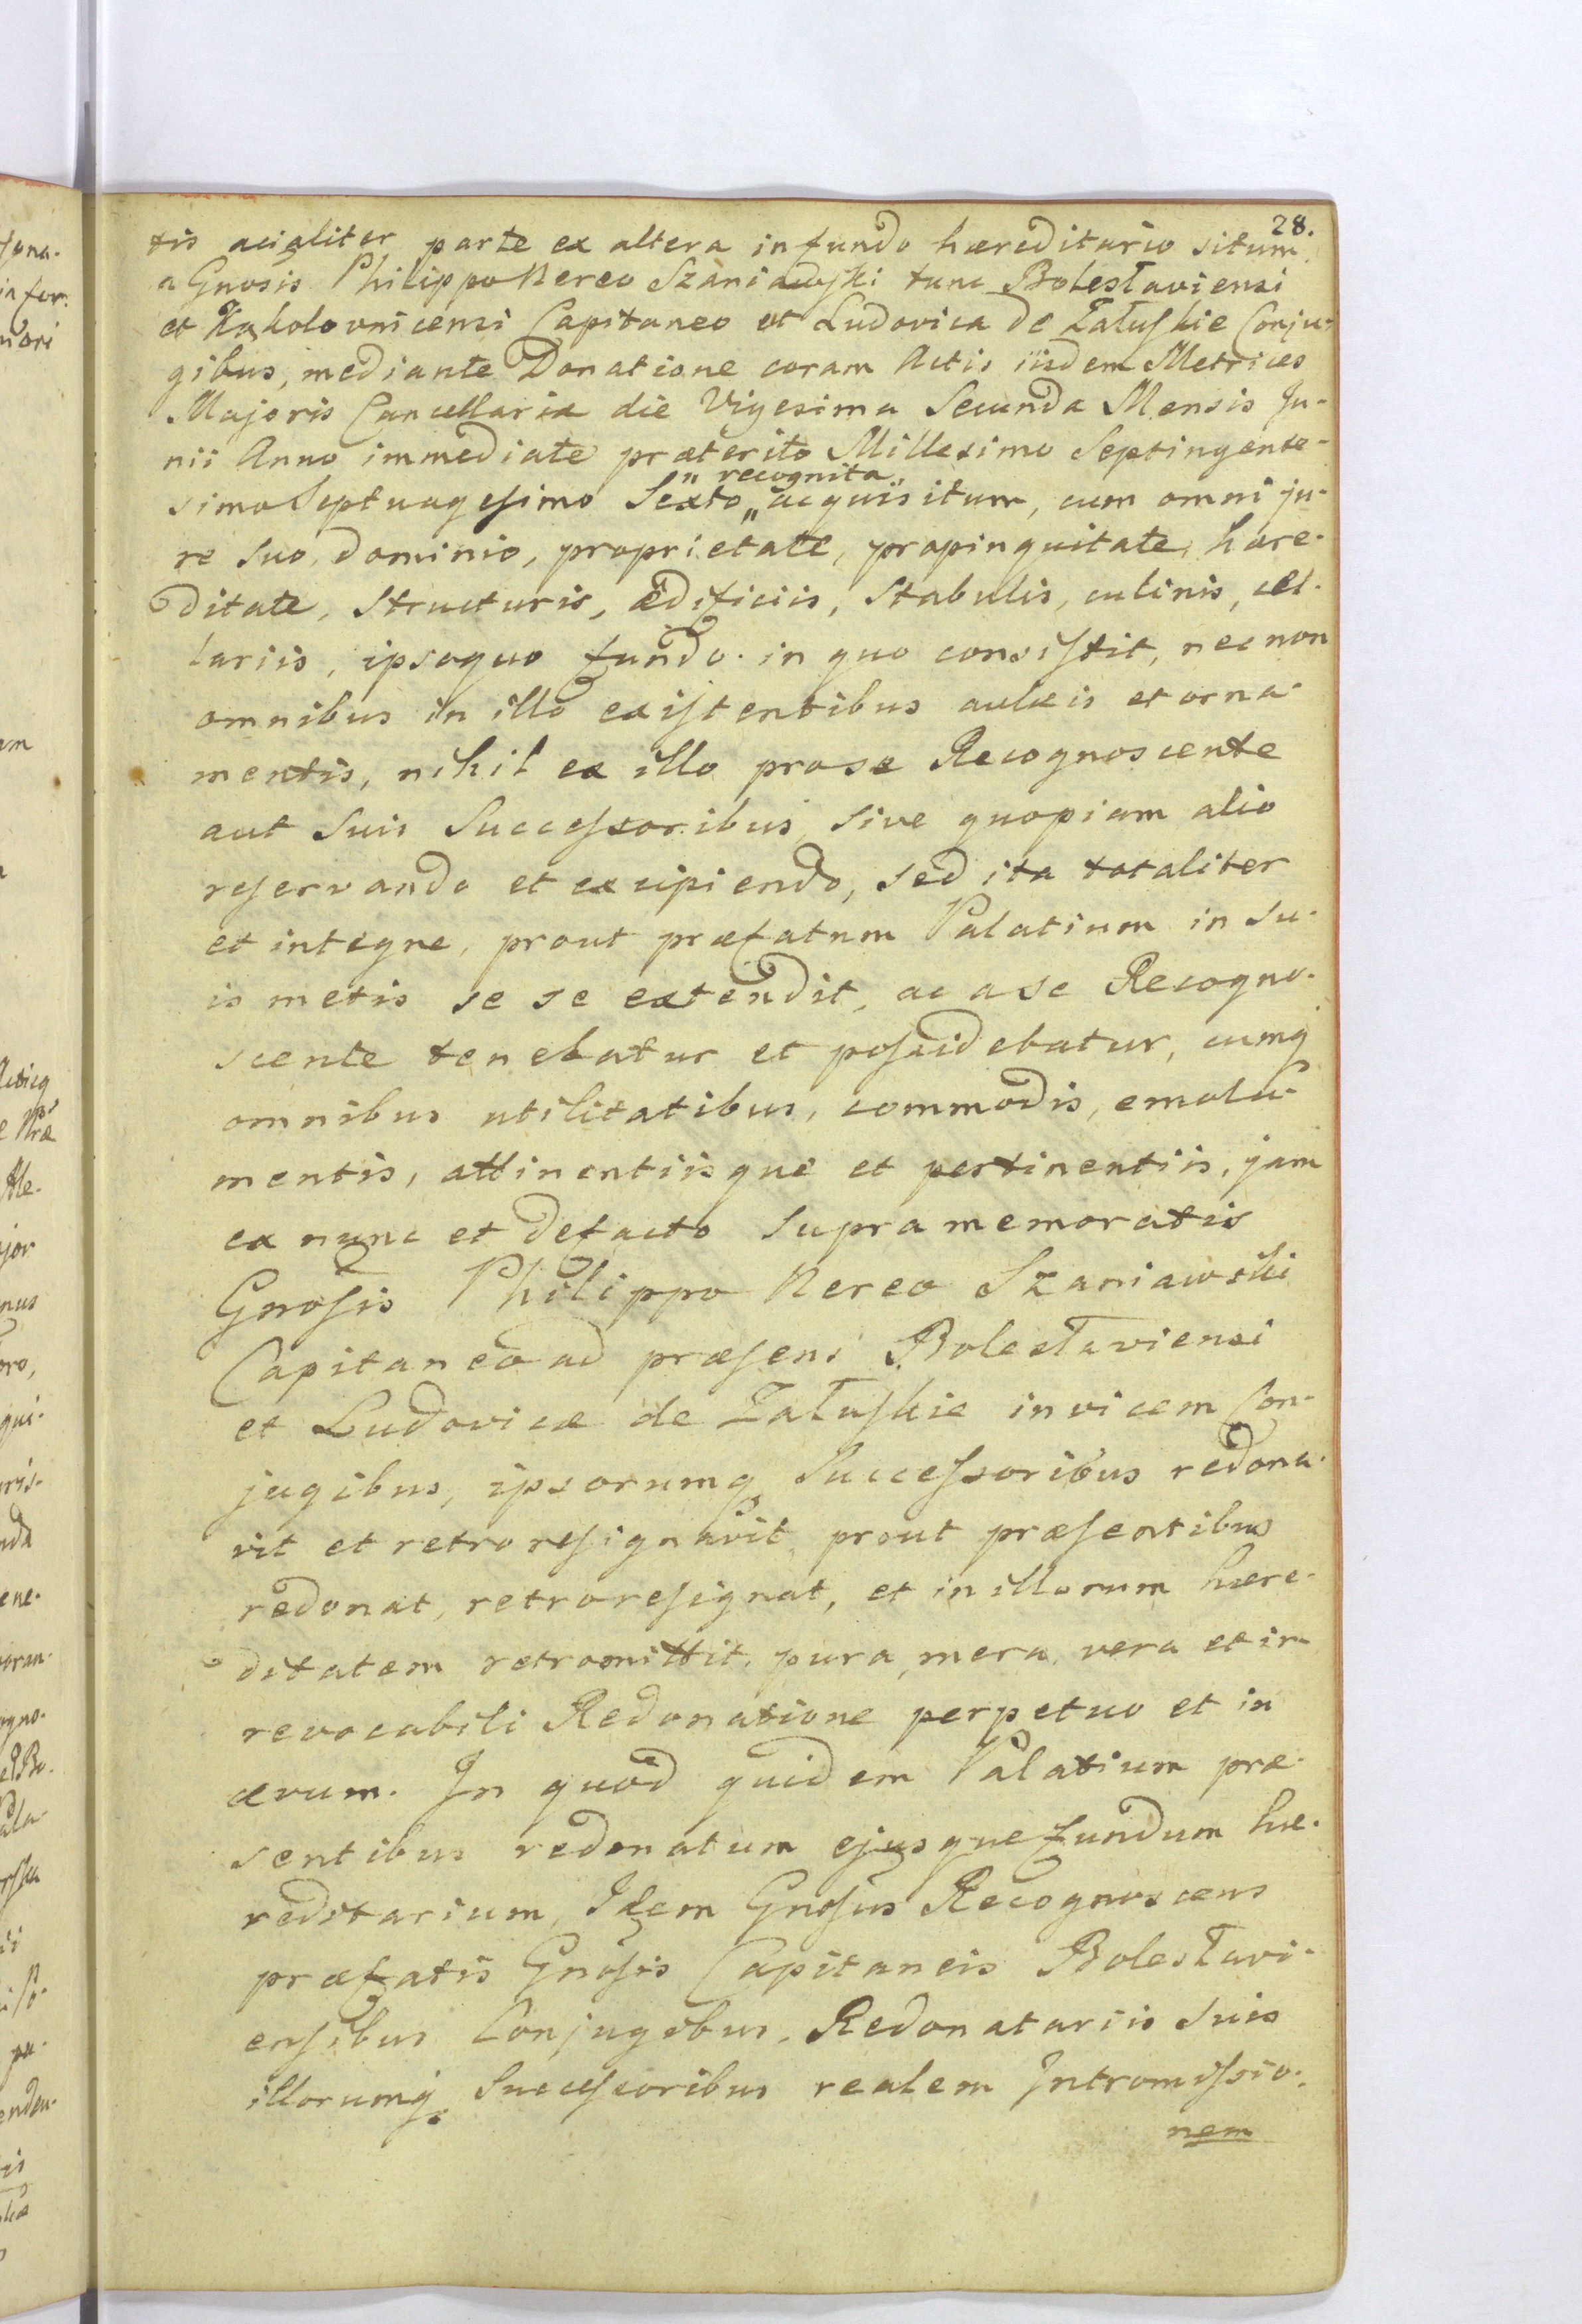 28.
tis acialiter parte ex altera in fundo hæreditario situm.
a Gnosis Philippo Nereo Szaniawski tunc Bolesłaviensi
et Kąkolovnicensi Capitaneo et Ludovica de Załuskie Conju-
gibus, mediante Donatione coram Actis iisdem Metrices
Majoris Cancellariæ die Vigesima Secunda Mensis Ju-
nii Anno immediate præterito Millesimo Septingente-
" recognita "
simo Septuagesimo Sexto " acquisitum, cum omni ju-
re suo, dominio, proprietate, propinquitate, hære-
ditate, structuris, ædificiis, stabulis, culinis, cel-
lariis, ipsoquo fundo in quo consistit, nec non
omnibus in illo existentibus aulæis et orna-
mentis, nihil ex illo pro se Recognoscente
aut suis Successoribus, sive quopiam alio
reservando et excipiendo, sed ita totaliter
et integre, prout præfatum Palatium in su-
is metis se se extendit, ac a se Recogno-
scente tenebatur et possidebatur, cumq
omnibus utilitatibus, commodis, emolu-
mentis, attinentiisque et pertinentiis, jam
ex nunc et defacto supra memoratis
Gnosis Philippo Nereo Szaniawski
Capitaneo ad præsens Bolesłaviensi
et Ludovicæ de Załuskie invicem Con-
jugibus, ipsorumq Successoribus redona-
vit et retroresignavit, prout præsentibus
redonat, retroresignat, et in illorum hære-
ditatem retromittit, pura, mera, vera et ir-
revocabili Redonatione perpetuo et in
ævum. In quod quidem Palatium præ-
sentibus redonatum ejusque fundum hæ-
reditarium, Idem Gnosus Recognoscens
præfatis Gnosis Capitaneis Bolesłavi-
ensibus Conjugibus, Redonatariis suis
illorumq Successoribus realem Intromissio-
nem